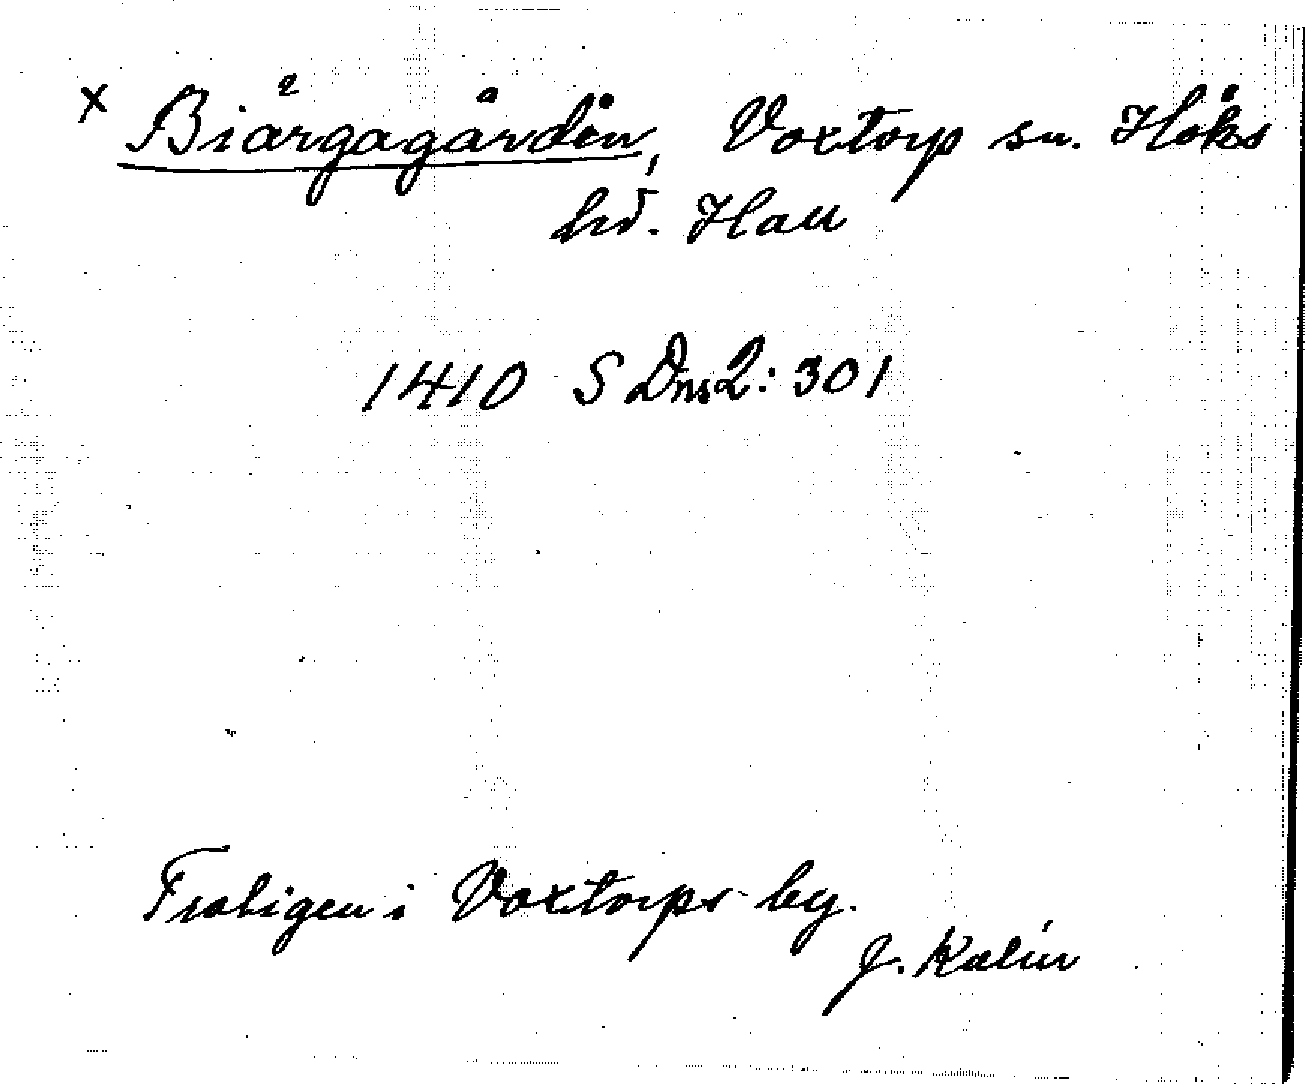 x Biærgagården, Voxtorp sn. Höks
hd. Hall
1410 SDns2: 301
Troligen i Voxtorps by.
J. Kalén